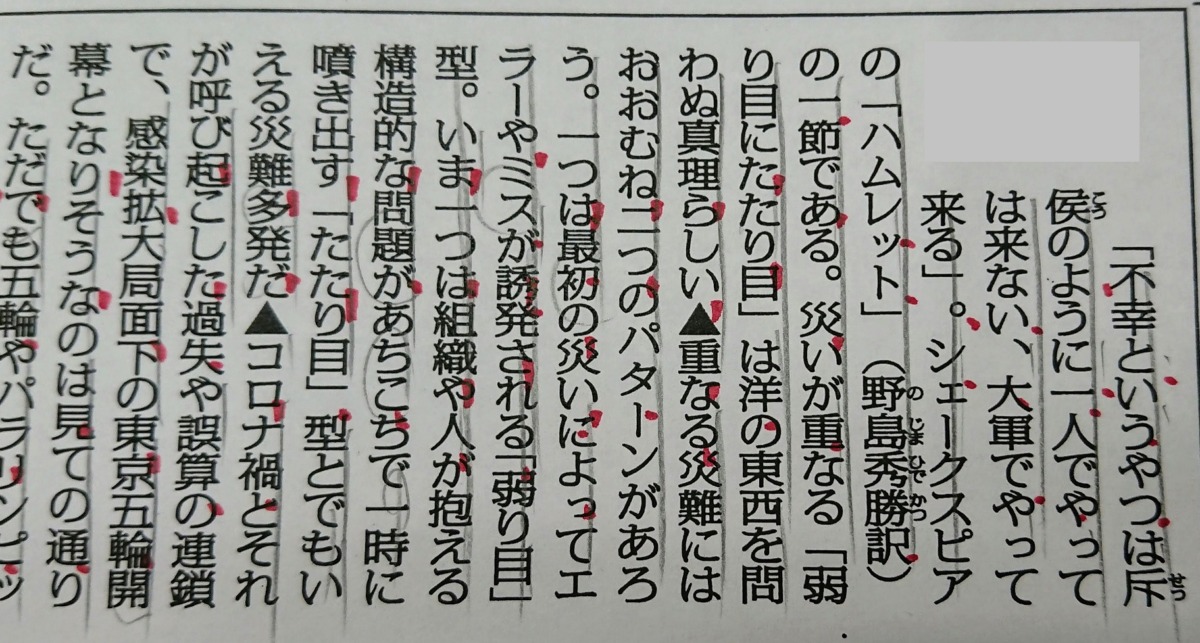 「不幸というやつは斥
侯のように一人でやって
は来ない、大軍でやって
来る」。シェークスピア
の「ハムレット」（野島秀勝訳）
の一節である。災いが重なる「弱
り目にたたり目」は洋の東西を問
わぬ真理らしい▲重なる災難には
おおむね二つのパターンがあろ
う。一つは最初の災いによってエ
ラーやミスが誘発される「弱り目」
型。いま一つは組織や人が抱える
構造的な問題があちこちで一時に
噴き出す「たたり目」型とでもい
える災難多発だ▲コロナ禍とそれ
が呼び起こした過失や誤算の連鎖
で、感染拡大局面下の東京五輪開
幕となりそうなのは見ての通り
だ。ただでも五輪やパラリンピッ